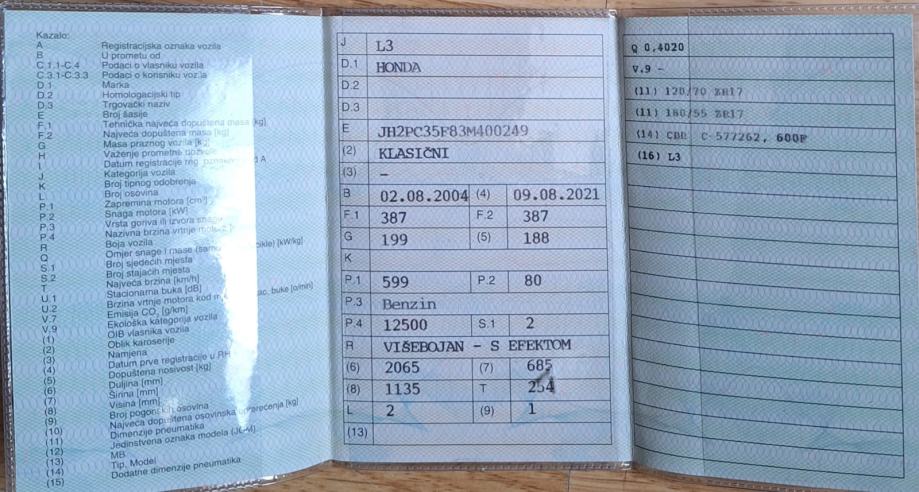 Kazalo:
A Registracijska oznaka vozila
B U prometu od
C.1.1-C.4 Podaci o vlasniku vozila
C.3.1-C.3.3 Podaci o korisniku vozila
D.1 Marka
D.2 Homologacijski tip
D.3 Trgovački naziv
E Broj šasije
F.1 Tehnička najveća dopuštena masa [kg]
F.2 Najveća dopuštena masa [kg]
G Masa praznog vozila [kg]
H Važenje prometne dozvole
I Datum registracije reg. A
J Kategorija vozila
K Broj tipnog odobrenja
L Broj osovina
P.1 Zapremina motora [cm³]
P.2 Snaga motora [kW]
P.3 Vrsta goriva ili izvora snage
P.4 Nazivna brzina vrtnje
R Boja vozila
Q Omjer snage i mase [kW/kg]
S.1 Broj sjedećih mjesta
S.2 Broj stajaćih mjesta
T Najveća brzina [km/h]
U.1 Stacionarna buka [dB]
U.2 Brzina vrtnje motora kod buke [o/min]
V.7 Emisija CO₂ [g/km]
V.9 Ekološka kategorija vozila
(1) OIB vlasnika vozila
(2) Oblik karoserije
(3) Namjena
(4) Datum prve registracije u RH
(5) Dopuštena nosivost [kg]
(6) Duljina [mm]
(7) Širina [mm]
(8) Visina [mm]
(9) Broj pogonskih osovina
(10) Najveća dopuštena osovinska opterećenja [kg]
(11) Dimenzije pneumatika
(12) Jedinstvena oznaka modela
(13) MB
(14) Tip, Model
(15) Dodatne dimenzije pneumatika
J L3
D.1 HONDA
D.2
D.3
E JH2PC35F83M400249
(2) KLASIČNI
(3) –
B 02.08.2004 (4) 09.08.2021
F.1 387 F.2 387
G 199 (5) 188
K
P.1 599 P.2 80
P.3 Benzin
P.4 12500 S.1 2
R VIŠEBOJAN - S EFEKTOM
(6) 2065 (7) 685
(8) 1135 T 254
L 2 (9) 1
(13)
Q 0.4020
V.9 -
(11) 120/70 ZR17
(11) 180/55 ZR17
(14) CBR C-577262, 600F
(16) L3